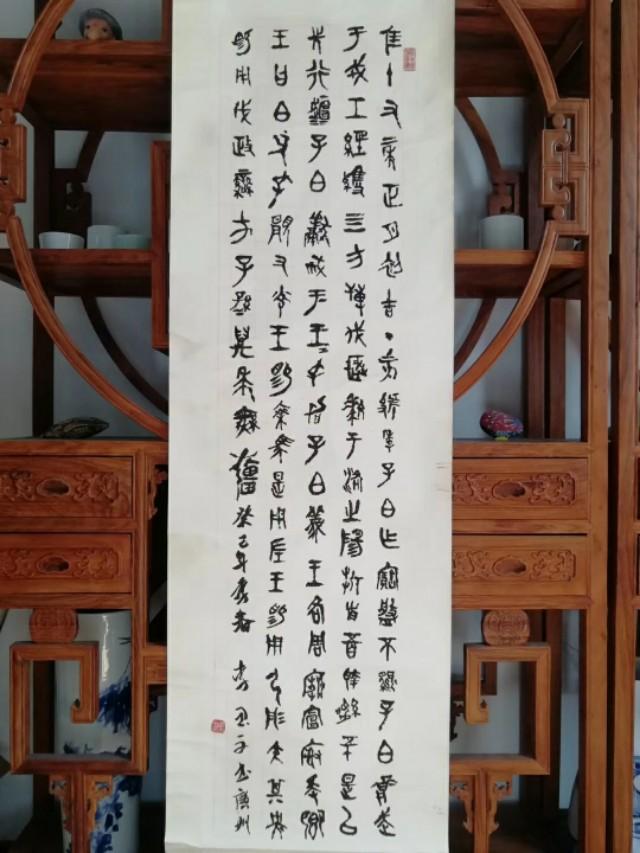 隹十又二年正月初吉丁亥虢季子白乍寶盤不顯子白壯武
于戎工經維四方搏伐玁狁于洛之陽折首五百執訊五十是以
先行桓桓子白獻馘于王王孔加子白義王各周廟宣榭爰卿
王曰白父孔顯又光王賜乘馬是用左王賜用弓彤矢其央
賜用戉政蠻方子子孫孫萬年無疆癸巳年春李書廣州